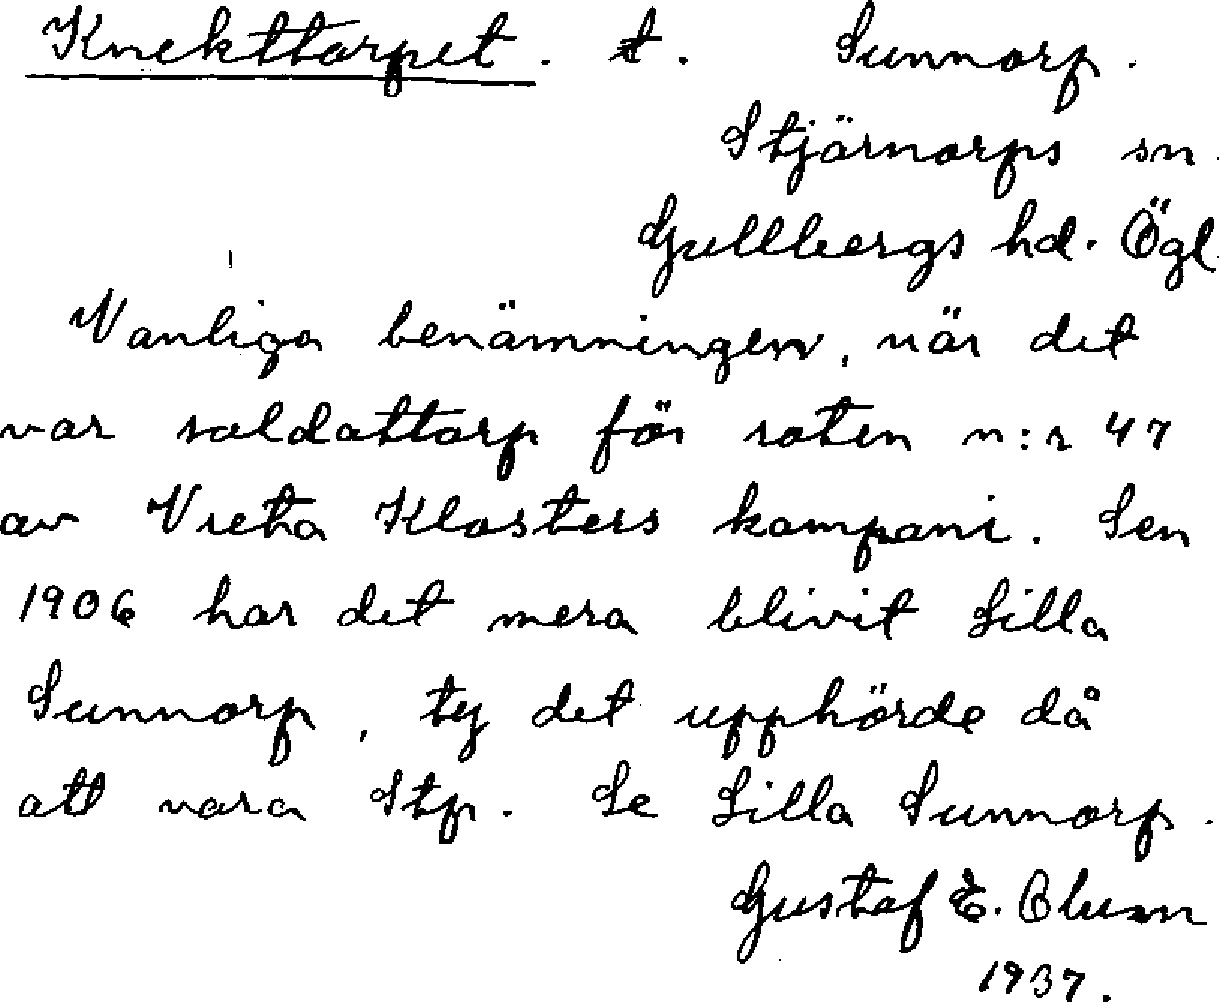 Knekttorpet. t. Sunnorp.
Stjärnorps sn.
Gullbergs hd. Ögl.
Vanliga benämningen, när det
var soldattorp för roten n:r 47
av Vreta Klosters kompani. Sen
1906 har det mera blivit Lilla
Sunnorp, ty det upphörde då
att vara Stp. Se Lilla Sunnorp.
Gustaf E. Blum
1937.